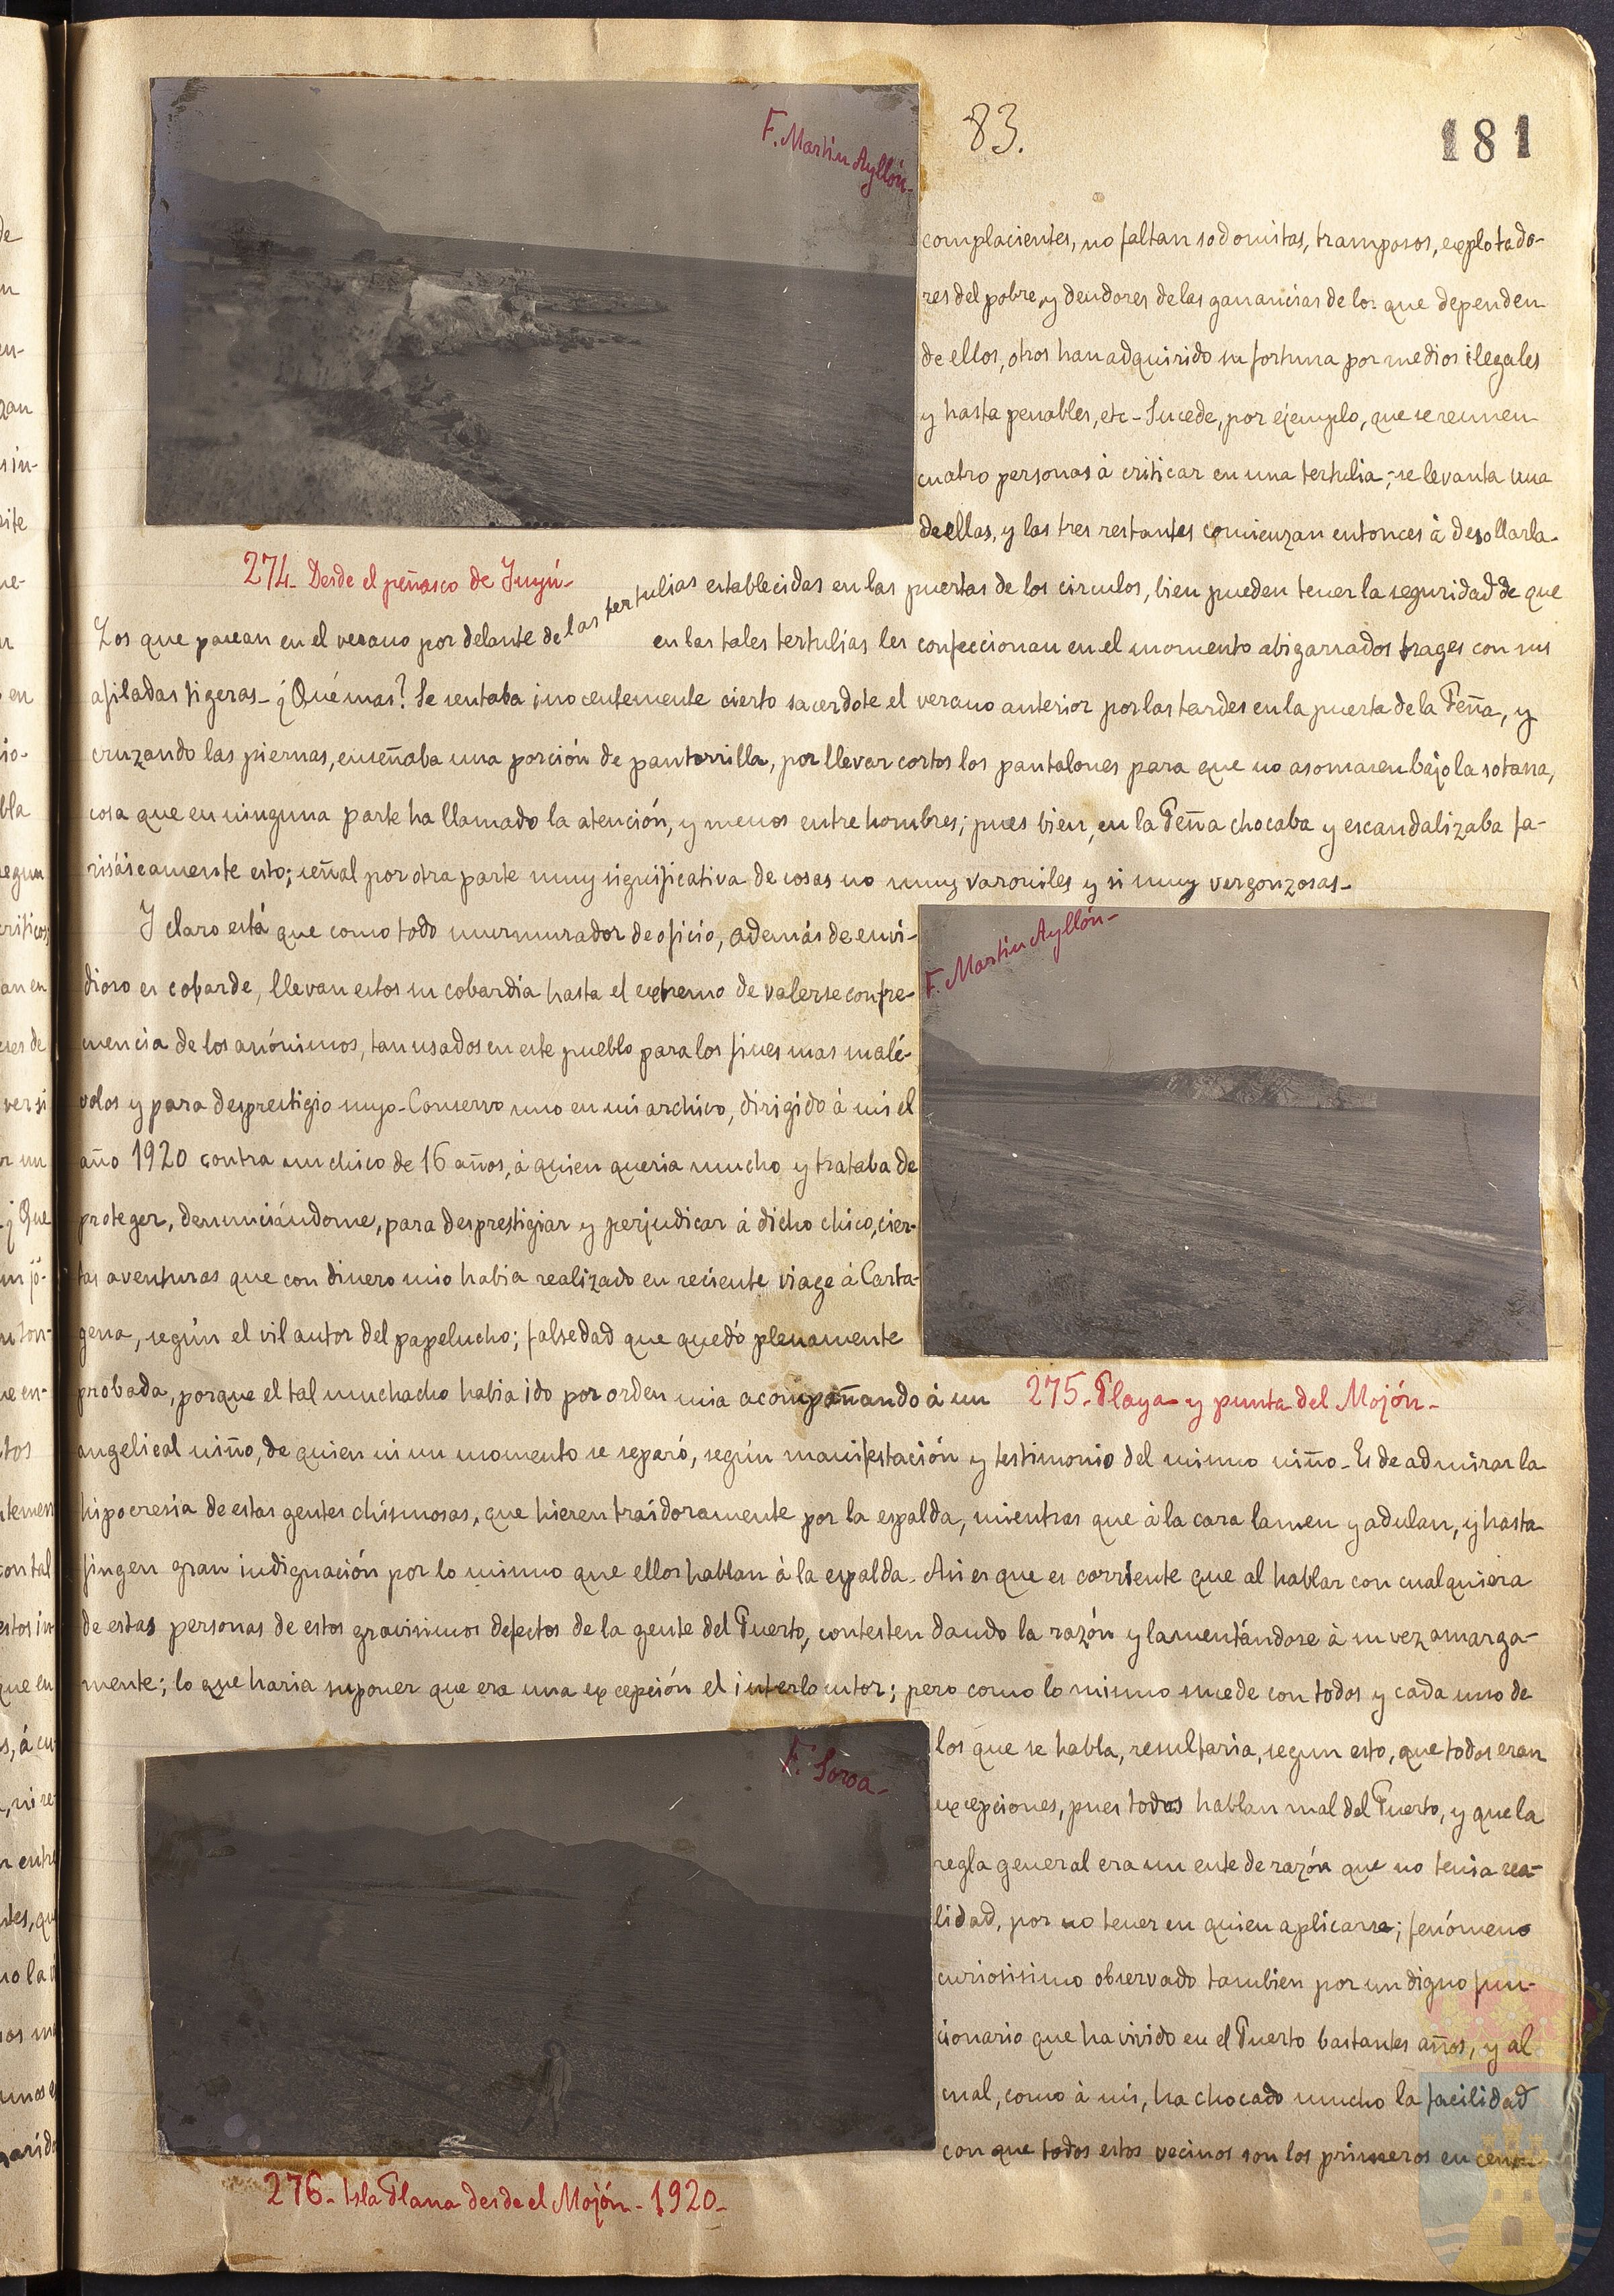 83.
181
F. Martin Ayllón-
complacientes, no faltan sodomitas, tramposos, explotado-
res del pobre, y deudores de las ganancias de los que dependen
de ellos, otros han adquirido su fortuna por medios ilegales
y hasta penables, etc - Sucede, por ejemplo, que se reunen
cuatro personas á criticar en una tertulia; se levanta una
de ellas, y las tres restantes comienzan entonces á desollarla-
274- Desde el peñasco de
Los que pasean en el verano por delante de las tertulias establecidas en las puertas de los circulos, bien pueden tener la seguridad de que
en las tales tertulias les confeccionan en el momento abigarrados trages con sus
afiladas tigeras- ¿Qué mas? Se sentaba inocentemente cierto sacerdote el verano anterior por las tardes en la puerta de la Peña, y
cruzando las piernas, enseñaba una porción de pantorrilla, por llevar cortos los pantalones para que no asomasen bajo la sotana,
cosa que en ninguna parte ha llamado la atención, y menos entre hombres; pues bien, en la Peña chocaba y escandalizaba fa-
risáicamente esto; señal por otra parte muy significativa de cosas no muy varoniles y si muy vergonzosas-
Y claro está que como todo murmurador de oficio, además de envi-
dioso es cobarde, llevan estos su cobardia hasta el extremo de valerse con fre-
cuencia de los anónimos, tan usados en este pueblo para los fines mas malé-
volos y para desprestigio suyo- Conservo uno en mi archivo, dirigido á mi el
año 1920 contra un chico de 16 años, á quien queria mucho y trataba de
proteger, denunciándome, para desprestigiar y perjudicar á dicho chico, cier-
tas aventuras que con dinero mio habia realizado en reciente viage á Carta-
gena, según el vil autor del papelucho; falsedad que quedó plenamente
probada, porque el tal muchacho habia ido por orden mia acompañando á un
F. Martin Ayllón-
275- Playa y punta del Mojón-
angelical niño, de quien ni un momento se separó, según manifestación y testimonio del mismo niño- Es de admirar la
hipocresia de estas gentes chismosas, que hieren traidoramente por la espalda, mientras que á la cara lamen y adulan, y hasta
fingen gran indignación por lo mismo que ellos hablan á la espalda. Asi es que es corriente que al hablar con cualquiera
de estas personas de estos gravisimos defectos de la gente del Puerto, contesten dando la razón y lamentándose á su vez amarga-
mente; lo que haria suponer que era una excepción el interlocutor; pero como lo mismo sucede con todos y cada uno de
F. Soroa-
los que se habla, resultaria, segun esto, que todos eran
excepciones, pues todos hablan mal del Puerto, y que la
regla general era un ente de razón que no tenia rea-
lidad, por no tener en quien aplicarse; fenómeno
curiosisimo observado tambien por un digno fun-
cionario que ha vivido en el Puerto bastantes años, y al
cual, como á mi, ha chocado mucho la facilidad
con que todos estos vecinos son los primeros en
276- Isla Plana desde el Mojón- 1920-